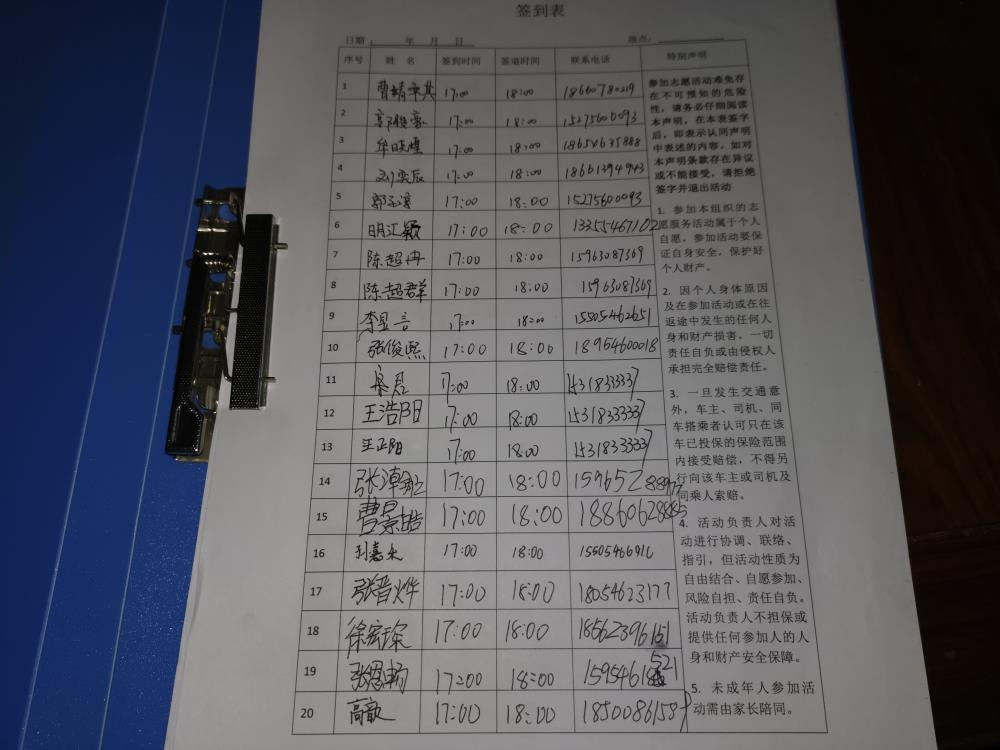 签到表
日期： 年 月 日 地点：
序号 姓 名 签到时间 签退时间 联系电话 特别声明
1 曹婧 17:00 18:00 18660780219
2 郭 豪 17:00 18:00 15275600093
3 牟 煋 17:00 18:00 18654635888
4 刘奕辰 17:00 18:00 18661394943
5 郭 17:00 18:00 15275600093
6 明汇颖 17:00 18:00 13355467102
7 陈超冉 17:00 18:00 15963087369
8 陈超群 17:00 18:00 15963087369
9 李昱言 17:00 18:00 15505462651
10 张俊熙 17:00 18:00 18954600018
11 17:00 18:00 1531833337
12 王浩阳 17:00 18:00 1531833337
13 王正阳 17:00 18:00 1531833337
14 张 17:00 18:00 159652
15 曹景皓 17:00 18:00
16 刘嘉禾 17:00 18:00
17 张晋烨 17:00 18:00 18054623177
18 徐宏琛 17:00 18:00 18562396151
19 张 17:00 18:00
20 高歌 17:00 18:00
参加志愿活动难免存
在不可预知的危险
性，请务必仔细阅读
本声明，在本表签字
后，即表示认同声明
中表述的内容。如对
本声明条款存在异议
或不能接受，请拒绝
签字并退出活动
1. 参加本组织的志
愿服务活动属于个人
自愿，参加活动要保
证自身安全，保护好
个人财产。
2. 因个人身体原因
及在参加活动或在往
返途中发生的任何人
身和财产损害，一切
责任自负或由侵权人
承担完全赔偿责任。
3. 一旦发生交通意
外，车主、司机、同
车搭乘者认可只在该
车已投保的保险范围
内接受赔偿，不得另
行向该车主或司机及
同乘人索赔。
4. 活动负责人对活
动进行协调、联络、
指引，但活动性质为
自由结合、自愿参加、
风险自担、责任自负。
活动负责人不担保或
提供任何参加人的人
身和财产安全保障。
5. 未成年人参加活
动需由家长陪同。